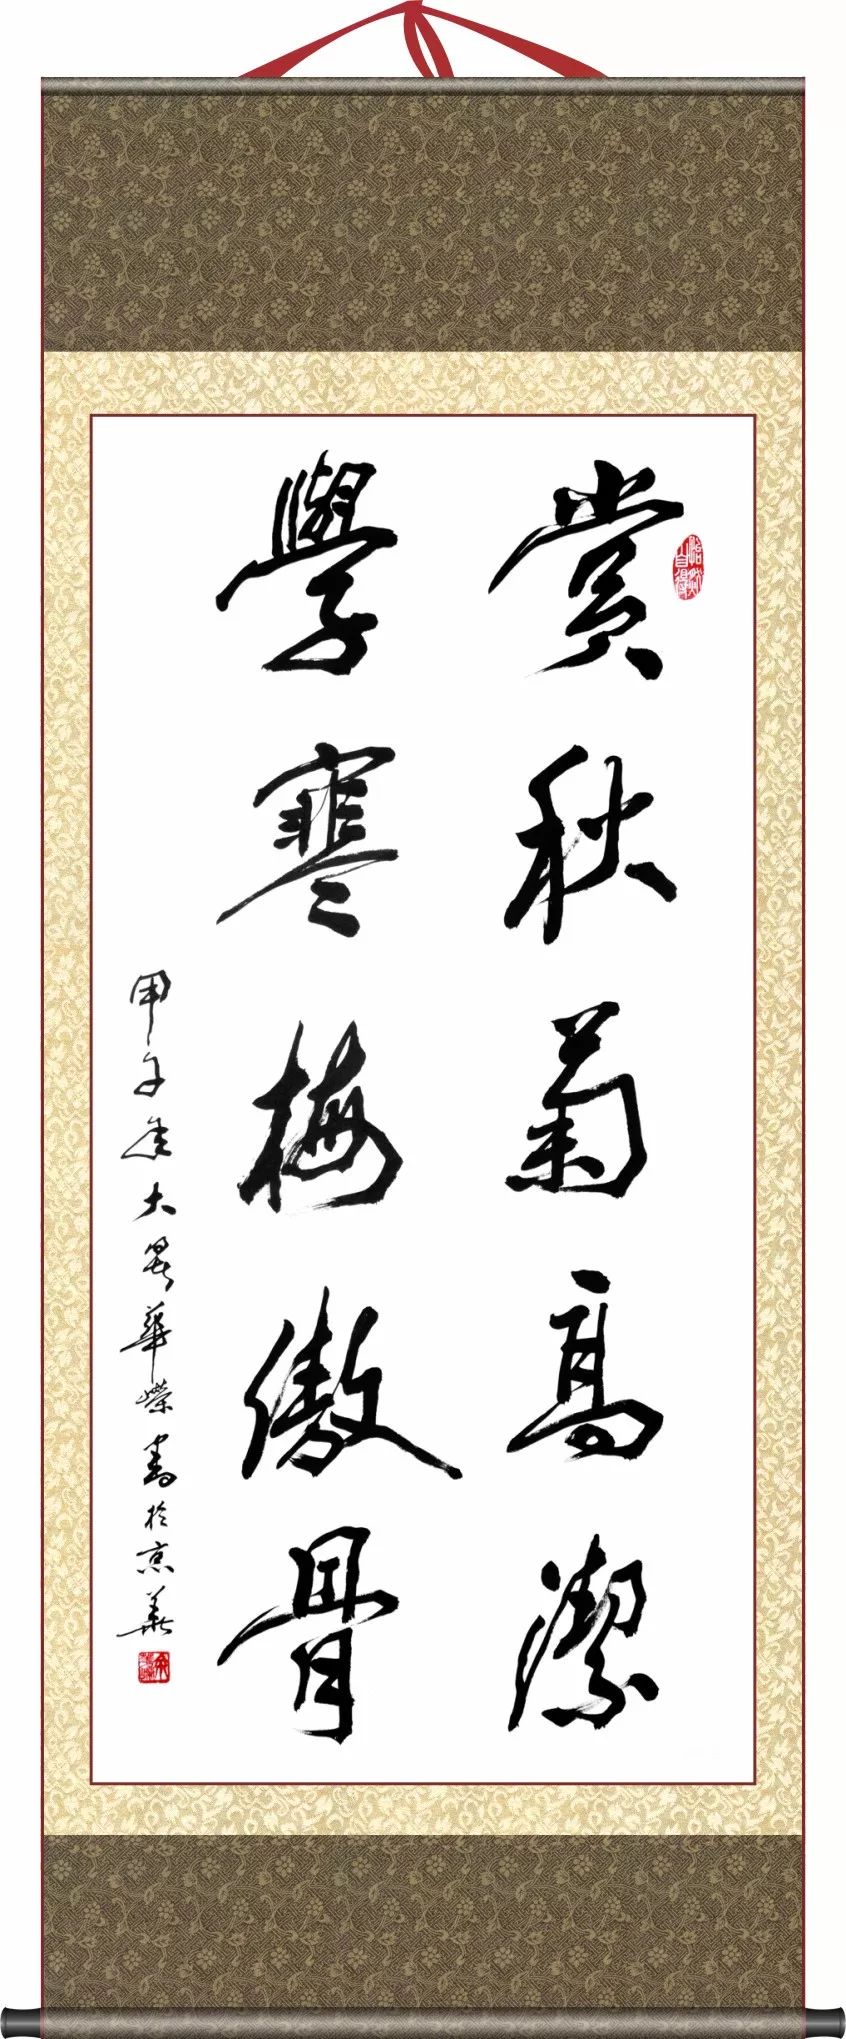 賞秋菊高潔
學寒梅傲骨
甲子年大暑華嶸書於京華
怡然自得